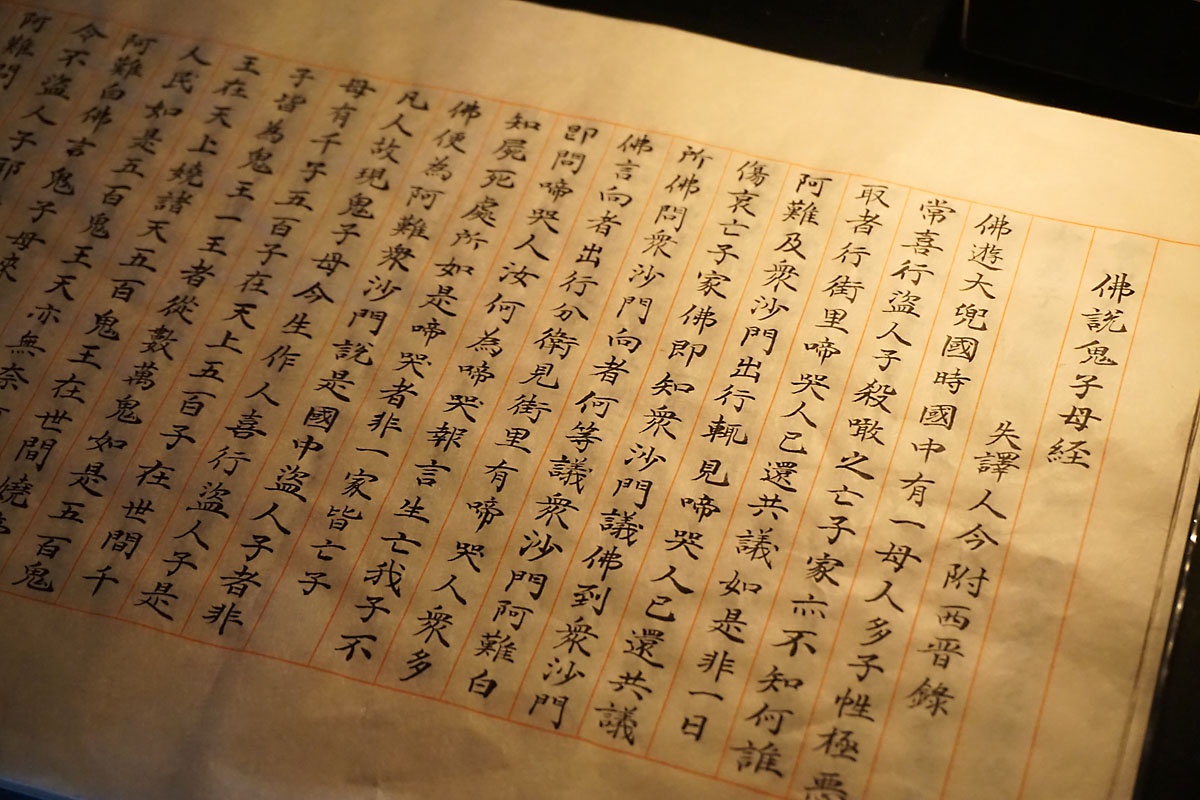 佛說鬼子母経
失譯人今附西晉錄
佛遊大兜國時國中有一母人多子性極惡
常喜行盜人子殺噉之亡子家亦不知何誰
取者行街里啼哭人已還共議如是非一日
阿難及衆沙門出行輒見啼哭人已還共議
傷哀亡子家佛即知衆沙門議佛到衆沙門
所佛問衆沙門向者何等議衆沙門阿難白
佛言向者出行分衛見街里有啼哭人衆多
即問啼哭人汝何為啼哭報言生亡我子不
知屍死處所如是啼哭者非一家皆亡子
佛便為阿難衆沙門說是國中盜人子者非
凡人故現鬼子母今生作人喜行盜人子是
母有千子五百子在天上五百子在世間千
子皆為鬼王一王者從數萬鬼如是五百鬼
王在天上嬈諸天五百鬼王在世間嬈
人民如是五百鬼王天亦無奈
阿難白佛言鬼子母来
令不盜人子耶
阿難問